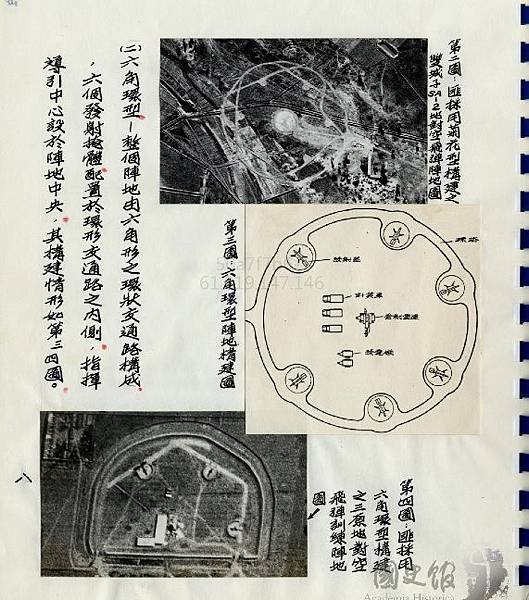 第二圖：匪採用菊花型構建之
雙城子SA-2地對空飛彈陣地圖
(二)六角環型－整個陣地由六角形之環狀交通路構成
，六個發射掩體配置於環形交通路之內側，指揮
導引中心設於陣地中央，其構建情形如第三四圖。
第三圖：六角環型陣地構建圖
環路
發射區
控制雷達
第四圖：匪採用
六角環型構建
之三原地對空
飛彈訓練陣地
圖
八
國史館
Academia Historica